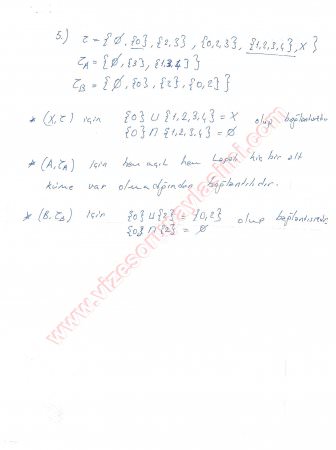 5.) τ = { ∅, {0}, {2,3}, {0,2,3}, {1,2,3,4}, X }
τ_A = { ∅, {3}, {1,3,4} }
τ_B = { ∅, {0}, {2}, {0,2} }
* (X,τ) için {0} ∪ {1,2,3,4} = X olup bağlantısız
{0} ∩ {1,2,3,4} = ∅
* (A,τ_A) için hem açık hem kapalı hiç bir alt
küme var olmadığından bağlantılıdır.
* (B,τ_B) için {0} ∪ {2} = {0,2} olup bağlantısızdır.
{0} ∩ {2} = ∅